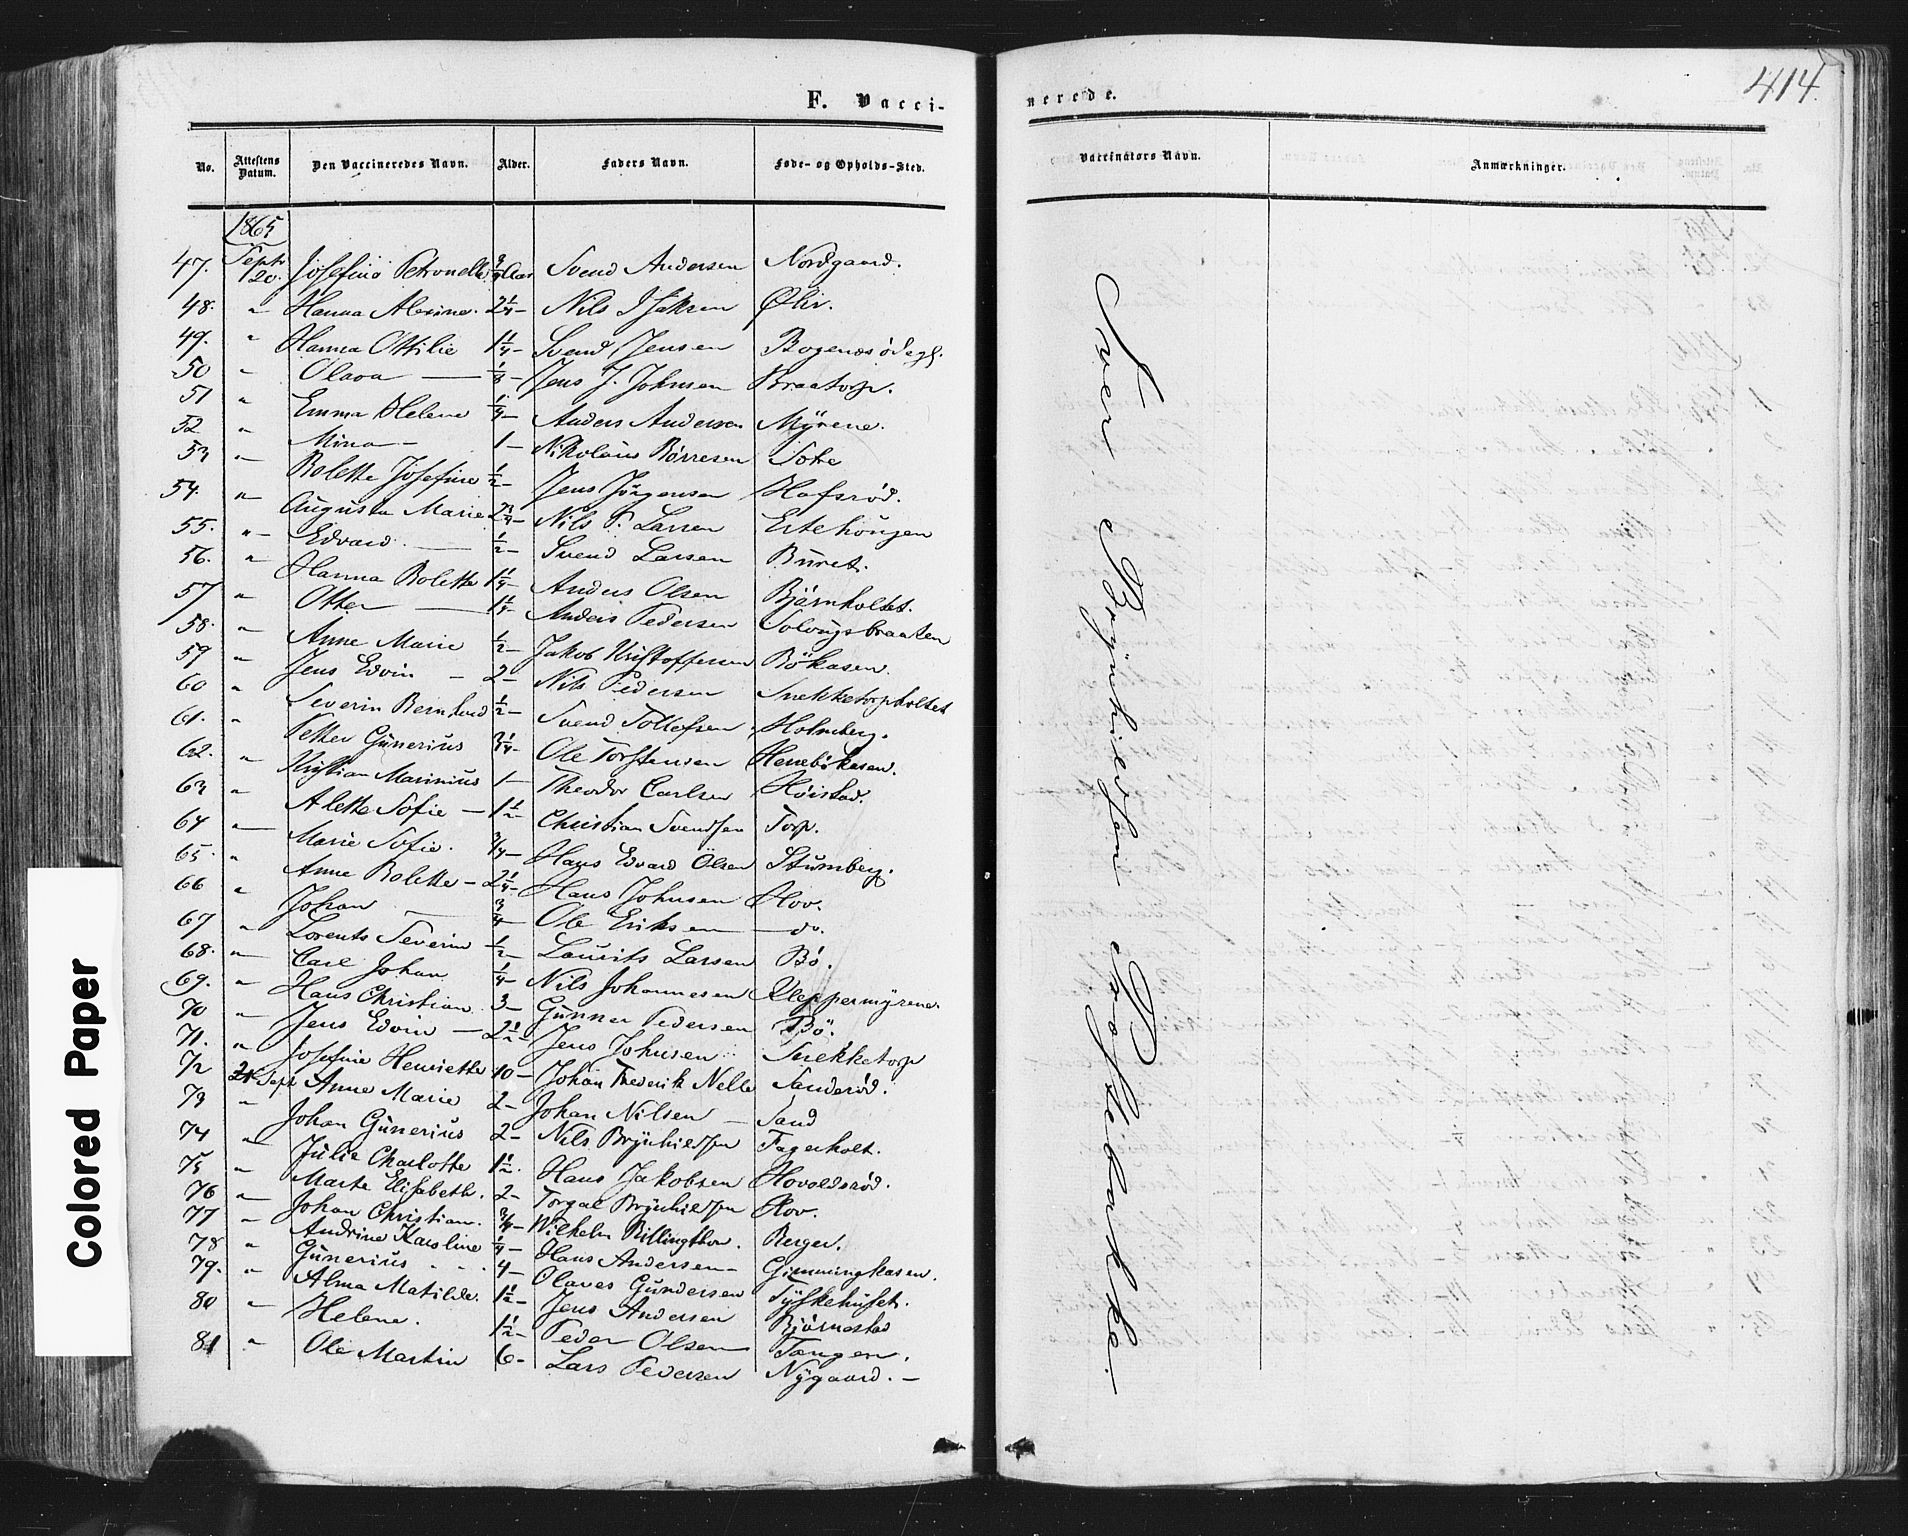 414.
F. Vacci-
nerede.
No. Attestens Datum. Den Vaccineredes Navn. Alder. Faders Navn. Føde- og Opholds-Sted.
Vaccinators Navn. Anmærkninger.
1865
47. Septr 20. Josefine Petronelle Aar Svend Andersen Nordgaard.
48. " Hanna Alvine. 2 1/4 - Nils Isaksen
49. " Hanna Ottilie 1 1/4 - Svend Jensen
50 " Olava — Jens J. Johnsen Braatorp.
51 " Emma Helene 1/4 - Anders Andersen Myrene.
52 " Mina - 1 - Nikolaus Børresen Sotre
53 " Bolette Josefine 1/2 - Jens Jörgensen Hafsröd.
54. " Augusta Marie Nils P. Larsen Estehougen
55. " Edvard. — 1/2 - Svend Larsen Buret.
56. " Hanna Bolette 1 1/4 - Anders Olsen Bjärnholtet.
57 " Otter — 1 1/4 - Anders Pedersen Solvugsbraaten
58. " Anne Marie 1/2 - Jakob Kristoffersen Bökasen.
59 " Jens Edvin - 2 - Nils Pedersen Snekketorpholtet
60 " Severin Bernhard 1/2 - Svend Tollefsen Holmberg.
61. " Petter Gunerius Ole Torstensen Henebökasen.
62. " Kristian Marinius 1 - Theodor Carlsen Höistad.
63 " Alette Sofie - 1 1/2 - Christian Svendsen Torp.
64 " Marie Sofie. 3/4 - Hans Edvard Olsen Stumberg.
65. " Anne Bolette - 2 1/4 - Hans Johnsen Hov.
66 " Johan — 3/4 - Ole Eriksen — do.
67 " Lorents Severin 1/2 - Laurits Larsen Bö.
68. " Carl Johan 1/4 - Nils Johannesen Kleppermyrene.
69. " Hans Christian. 3 - Gunner Pedersen Bö.
70 " Jens Edvin - 2 1/2 - Jens Johnsen Snekketorp
71. " Josefine Henriette 10 - Johan Frederik Nelle Sanderöd.
72 21 Sept Anne Marie 2 - Johan Nilsen — Sand
73 " Johan Gunerius 2 - Nils Brynhildsen Fagerholt.
74 " Julie Charlotte 1 1/2. Hans Jakobsen Hovoldsröd.
75 " Marte Elisabeth. 2 - Torgal Brynhildsen Hov.
76 " Johan Christian. 3/4 - Wilhelm Billingthon. Berger.
77 " Andrine Karoline 1/4 - Hans Andersen - Gimmingkasen.
78 " Gunerius - - - 4 - Olaves Gundersen Tyskehuset.
79. " Alma Matilde. 1 1/2 - Jens Andersen Bjørnestad
80 " Helene. 1 1/2 - Peder Olsen Tangen.
81 " Ole Martin 6 - Lars Pedersen Nygaard. -
Iver Brynhildsen Prästebakke.
Colored Paper